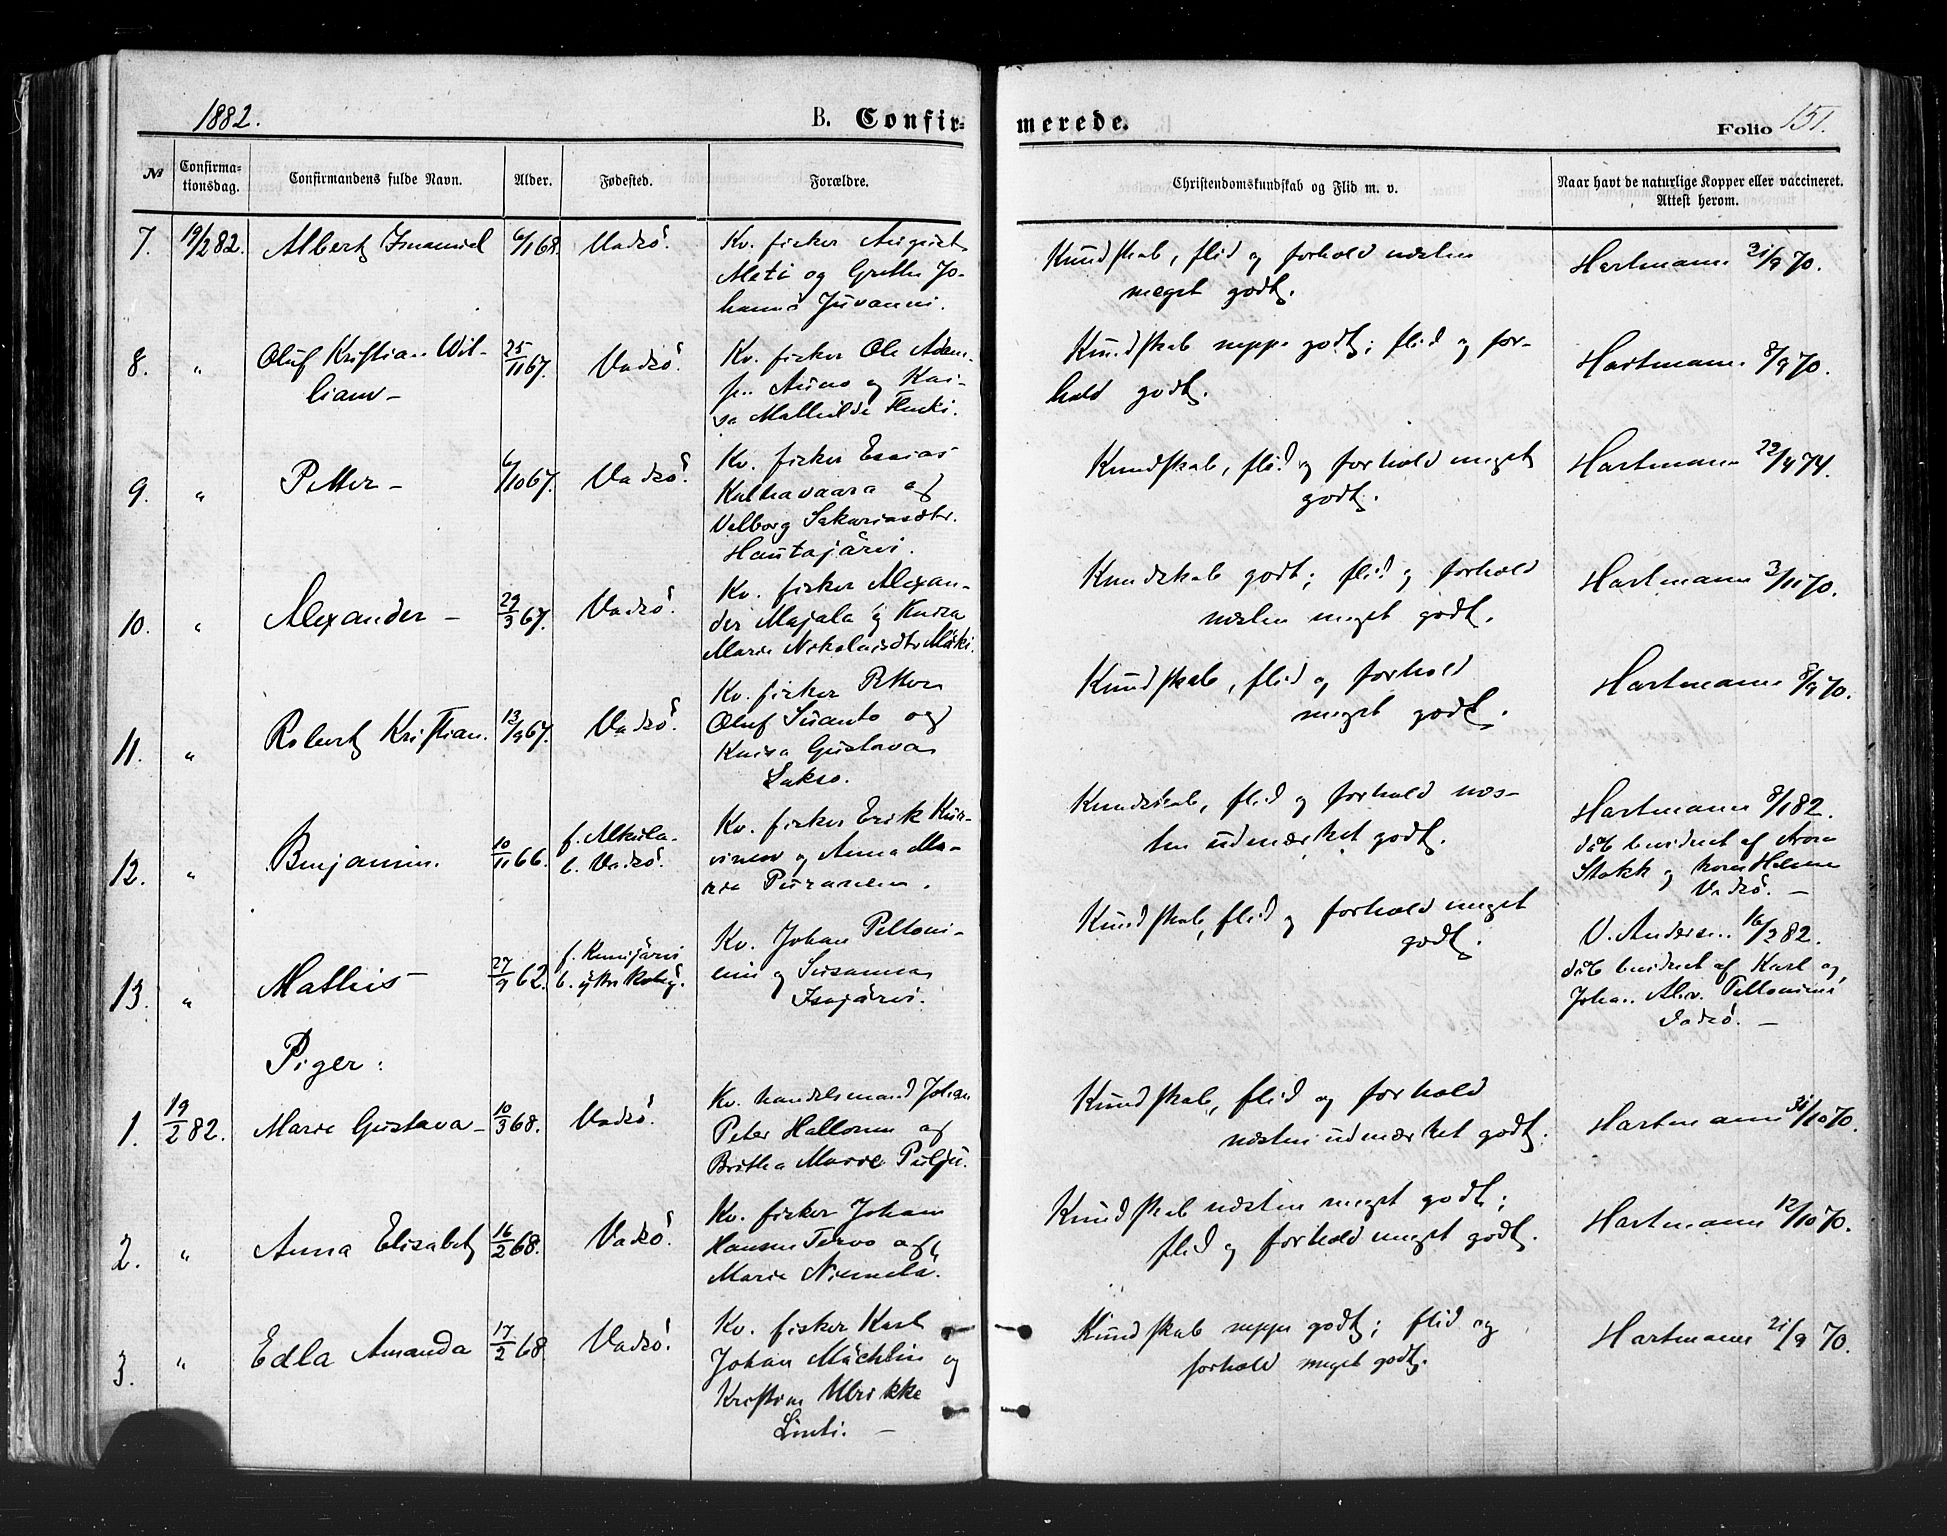 1882.
B. Confir-
merede.
Folio 151.
№
Confirma-
tionsdag.
Confirmandens fulde Navn.
Alder.
Fødested.
Forældre.
Christendomskundskab og Flid m. v.
Naar havt de naturlige Kopper eller vaccineret.
Attest herom.
7. 19/2 82. Albert Imanuel 6/1 68. Vadsö.
Kv. fisker August
Meti og Grethe Jo-
hanna Juvanni.
Kundskab, flid og forhold næsten
meget godt.
Hartmann 21/9 70.
8. " Oluf Kristian Wil-
liam – 25/11 67. Vadsö.
Kv. fisker Ole Adam-
sen Auno og Kai-
sa Mathilde
Kundskab neppe godt; flid og for-
hold godt.
Hartmann 8/9 70.
9. " Petter – 6/10 67. Vadsö.
Kv. fisker Esaias
Keltavaara og
Valborg Sakariasdtr.
Hautajärvi.
Kundskab, flid og forhold meget
godt.
Hartmann 22/4 74.
10. " Alexander – 29/3 67. Vadsö.
Kv. fisker Alexan-
der Majala og Kaisa
Marie Nikolaisdtr Mäki.
Kundskab godt; flid og forhold
næsten meget godt.
Hartmann 3/11 70.
11. " Robert Kristian. 13/9 67. Vadsö.
Kv. fisker Petter
Oluf Suanto og
Kaisa Gustava
Lakso.
Kundskab, flid og forhold
meget godt.
Hartmann 8/9 70.
12. " Benjamin. 10/11 66. f. Alkula
b. Vadsö.
Kv. fisker Erik Kur-
vinen og Anna Ma-
ria Puranen.
Kundskab, flid og forhold næs-
ten udmærket godt.
Hartmann 8/1 82.
dåb bevidnet af Aron
Stokk og kone Helene
Vadsö. –
13. " Mathis – 27/9 62. f.
b.
Kv. Johan Peltoni-
emi og Susanna
Isojärvi.
Kundskab, flid og forhold meget
godt.
V. Andersen 16/2 82.
dåb bevidnet af Karl og
Johan Alex. Peltoniemi
Vadsö. –
Piger:
1. 19/2 82. Marie Gustava – 10/3 68. Vadsö.
Kv. handelsmand Johan
Peter Hallonen og
Britha Marie Pulju.
Kundskab, flid og forhold
næsten udmærket godt.
Hartmann 31/10 70.
2. " Anna Elisabet 16/2 68. Vadsö.
Kv. fisker Johan
Hansen Tervo og
Marie Niemelä.
Kundskab næsten meget godt;
flid og forhold meget godt.
Hartmann 12/10 70.
3. " Edla Amanda 17/2 68. Vadsö.
Kv. fisker Karl
Johan Mächlin og
Kristine Ulrikke
Linti. –
Kundskab neppe godt; flid og
forhold meget godt.
Hartmann 21/9 70.